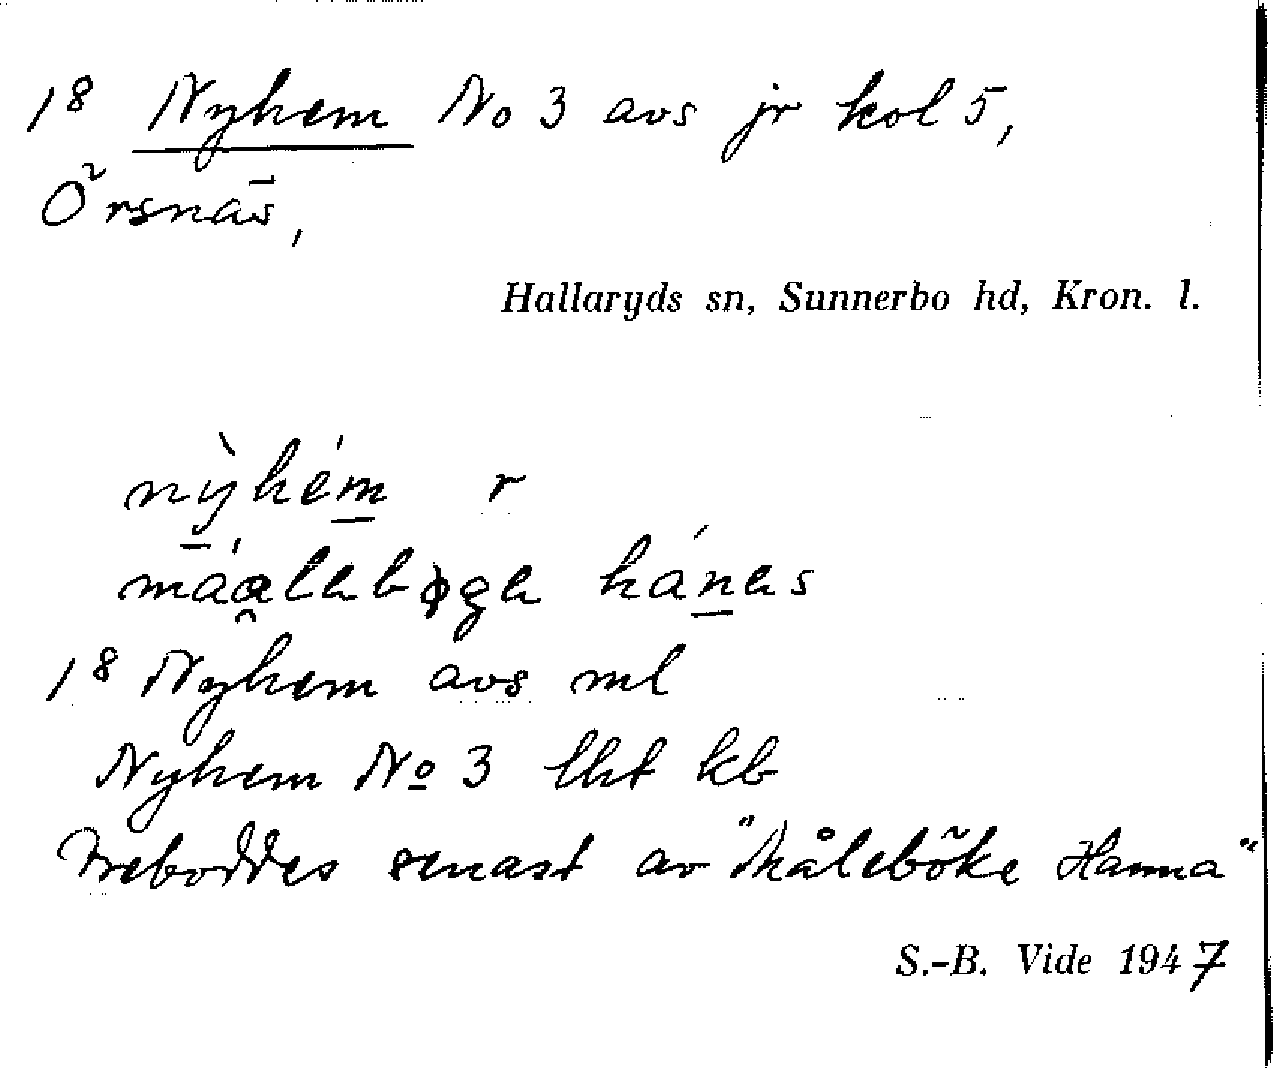 18 Nyhem No 3 avs jr kol 5,
Örsnäs,
Hallaryds sn, Sunnerbo hd, Kron. l.
nỳhém r
máalebøge hánas
18 Nyhem avs ml
Nyhem No 3 lht kb
Beboddes senast av "Måleböke Hanna"
S.-B. Vide 1947